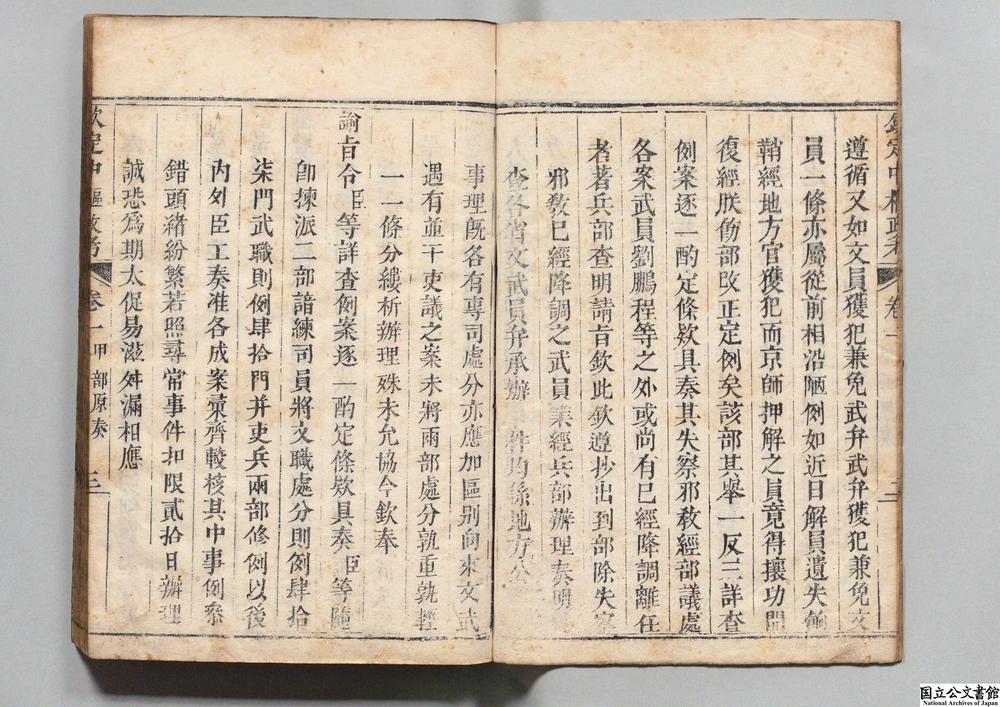 遵循又如文員獲犯兼免武弁武弁獲犯兼免文
員一條亦屬從前相沿陋例如近日解員遺失餉
鞘經地方官獲犯而京師押解之員竟得攘功開
復經朕飭部改正定例矣該部其舉一反三詳查
例案逐一酌定條欵具奏其失察邪教經部議處
各案武員劉鵬程等之外或尚有已經降調離任
者著兵部查明請旨欽此欽遵抄出到部除失察
邪教已經降調之武員業經兵部辦理奏明
查各省文武員弁承辦 件均係地方公
欽定中樞政考 卷一 甲部原奏 三
事理既各有專司處分亦應加區别向來文武
遇有並干吏議之案未將兩部處分孰重孰輕
一一條分縷析辦理殊未允協今欽奉
諭旨令臣等詳查例案逐一酌定條欵具奏臣等隨
卽揀派二部諳練司員將文職處分則例肆拾
柒門武職則例肆拾門并吏兵兩部修例以後
內外臣工奏准各成案彚齊較核其中事例叅
錯頭緒紛繁若照尋常事件扣限貳拾日辦理
誠恐爲期太促易滋舛漏相應
国立公文書館
National Archives of Japan